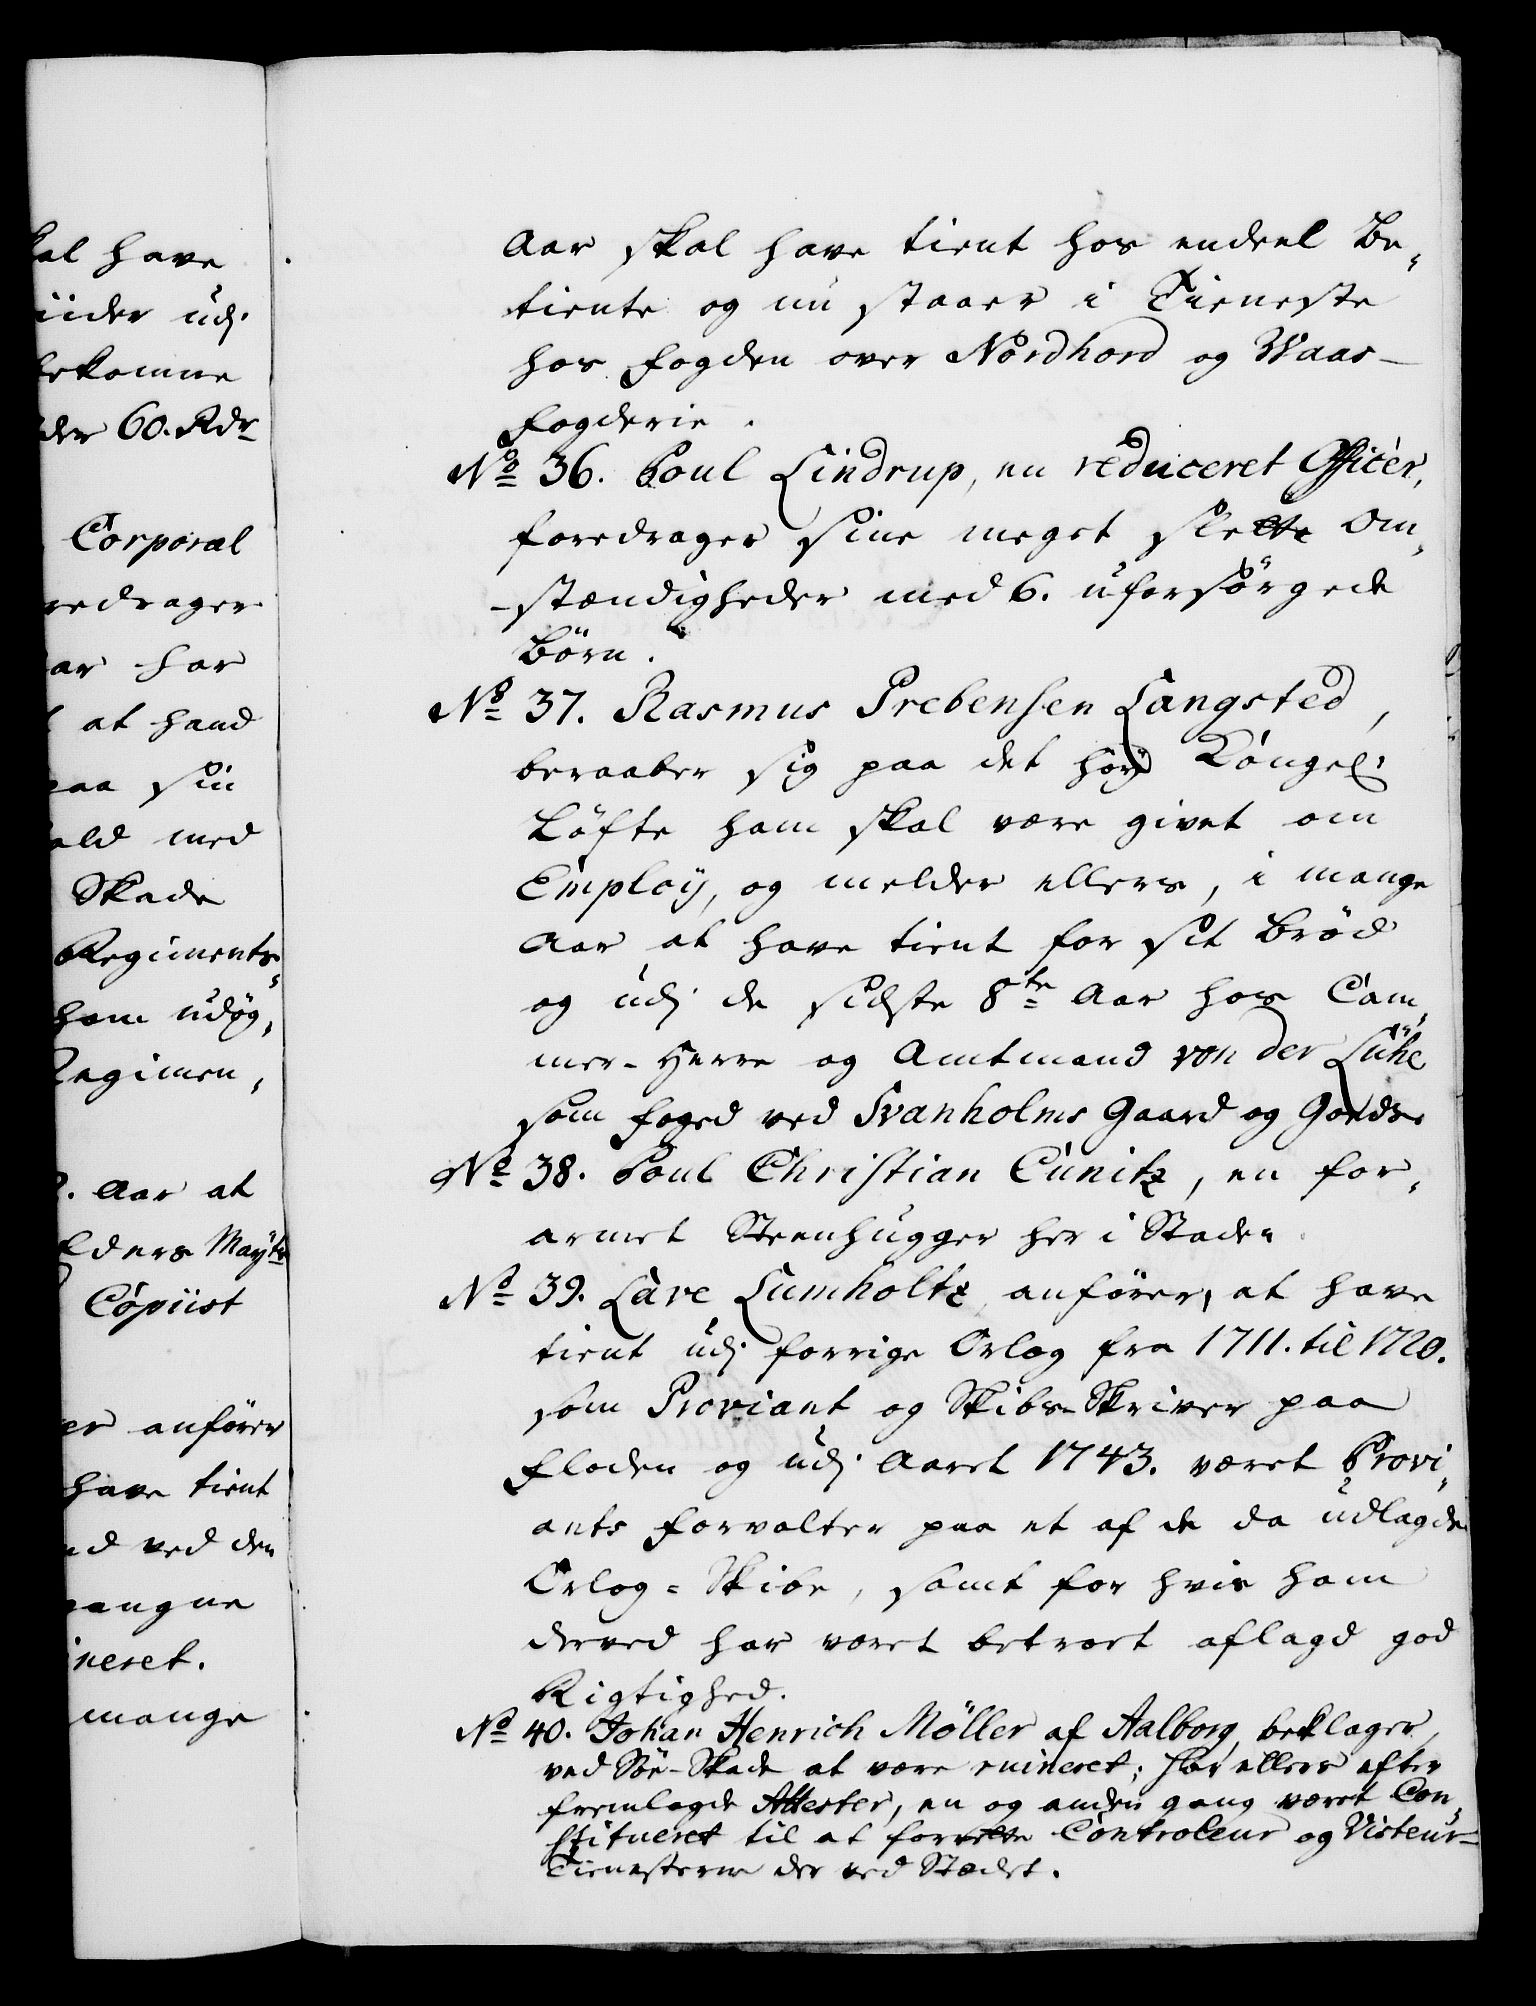 kal have
iider udj
bekomne
der 60. Rdr
Corporal
redrager
ar har
at hand
paa sin
ald med
Skade
Regiments-
ham udög,
Regimen,
Aar at
Elders Mayts
Copiist
er anfører
have tient
nd ved den
gangne
ineret.
mange
Aar skal have tient hos endeel Be,
tiente og nu staaer i Tieneste
hos fogden over Nordhord og Waas-
fogderie.
No 36. Poul Lindrup, en reduceret Officer,
foredrager sine meget slette Om,
-stændigheder med 6. uforsørgede
Börn.
No 37. Rasmus Prebensen Langsted,
beraaber sig paa det høye Kongel.
Löfte ham skal være givet om
Employ, og melder ellers, i mange
Aar at have tient for sit Bröd
og udj de sidste 8te Aar hos Cam,
mer-Herre og Amtmand von der Lühe
som foged ved Svanholms Gaard og Godts
No 38. Poul Christian Cunitz, en for,
armet Steenhugger her i Staden
No 39. Lave Lumholtz anfører, at have
tient udj forrige Orlog fra 1711. til 1720.
som Proviant og Skibs-Skriver paa
floden og udj Aaret 1743. været Provi,
ants forvalter paa et af de da udlagde
Orlog-Skibe, samt for hvis ham
derved har været betroet aflagd god
Rigtighed.
No 40. Johan Henrich Möller af Aalborg, beklager,
ved Söe-Skade at være ruineret; har ellers efter
fremlagde Attester, en og anden gang været Con,
stitueret til at forrette Controleur og Visteur-
Tienesterne der ved Stædet.